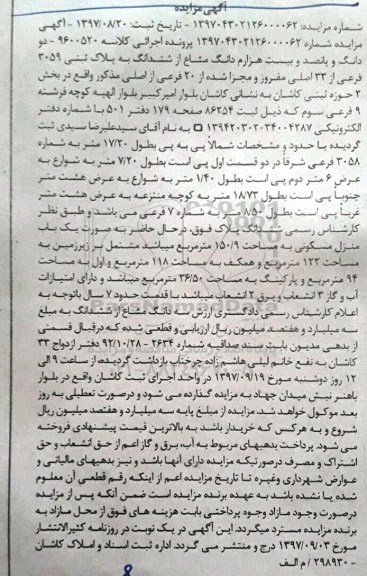 آگهی مزایده
شماره مزایده: ۱۳۹۷۰۴۳۰۲۱۲۶۰۰۰۰۶۲ - تاریخ ثبت: ۱۳۹۷/۰۸/۲۰ - آگهی
مزایده شماره ۱۳۹۷۰۴۳۰۲۱۲۶۰۰۰۰۶۲ پرونده اجرائی کلاسه ۹۶۰۰۵۲۰ - دو
دانگ و پانصد و بیست هزارم دانگ مشاع از ششدانگ به پلاک ثبتی ۳۰۵۹
فرعی از ۳۳ اصلی مفروز و مجزا شده از ۲۰ فرعی از اصلی مذکور واقع در بخش
۲ حوزه ثبتی کاشان به نشانی کاشان بلوار امیرکبیر بلوار الهیه کوچه فرشته
۹ فرعی سوم که ذیل ثبت ۸۶۲۵۴ صفحه ۱۷۹ دفتر ۵۰۱ با شماره دفتر
الکترونیکی ۱۳۹۴۲۰۳۰۲۰۳۴۰۰۴۲۸۷ به نام آقای سیدعلیرضا سیدی ثبت
گردیده با حدود و مشخصات شمالاً پی به پی بطول ۱۷/۲۰ متر به شماره
۳۰۵۸ فرعی شرقاً در دو قسمت اول پی است بطول ۷/۲۰ متر به شوارع به
عرض ۶ متر دوم پی است بطول ۱/۴۰ متر به شوارع به عرض هشت متر
جنوباً پی است بطول ۱۸/۷۳ متر به کوچه منتزعه به عرض هشت متر
غرباً پی است بطول ۸/۵۰ متر به شماره ۷ فرعی می باشد و طبق نظر
کارشناس رسمی شش دانگ پلاک فوق، درحال حاضر به صورت یک باب
منزل مسکونی به مساحت ۱۵۰/۹ مترمربع میباشد مشتمل بر زیرزمین به
مساحت ۱۲۲ مترمربع و همکف به مساحت ۱۱۸ مترمربع و اول به مساحت
۹۴ مترمربع و پارکینگ به مساحت ۳۶/۵۰ مترمربع میباشد و دارای امتیازات
آب و گاز ۳ انشعاب و برق ۲ انشعاب میباشد با قدمت حدود ۷ سال باتوجه به
اعلام کارشناس رسمی دادگستری ارزش سه دانگ مشاع از ششدانگ به مبلغ
سه میلیارد و هفتصد میلیون ریال ارزیابی و قطعی شده که درقبال قسمتی
از بدهی مدیون بابت سند صداقیه شماره ۲۶۳۴ - ۹۲/۱۰/۲۸ دفتر ازدواج ۳۳
کاشان به نفع خانم لیلی هاشم زاده چرختاب بازداشت گردیده؛ از ساعت ۹ الی
۱۲ روز دوشنبه مورخ ۱۳۹۷/۰۹/۱۹ در واحد اجرای ثبت کاشان واقع در بلوار
باهنر نبش میدان جهاد به مزایده گذارده می شود و درصورت تعطیلی به روز
بعد موکول خواهد شد. مزایده از مبلغ پایه سه میلیارد و هفتصد میلیون ریال
شروع و به هرکس که خریدار باشد به بالاترین قیمت پیشنهادی فروخته
می شود. پرداخت بدهیهای مربوط به آب، برق و گاز اعم از حق انشعاب و حق
اشتراک و مصرف درصورتیکه مزایده دارای آنها باشد و نیز بدهیهای مالیاتی و
عوارض شهرداری وغیره تا تاریخ مزایده اعم از اینکه رقم قطعی آن معلوم
شده یا نشده باشد به عهده برنده مزایده است ضمن آنکه پس از مزایده
درصورت وجود مازاد وجوه پرداختی بابت هزینه های فوق از محل مازاد به
برنده مزایده مسترد میگردد. این آگهی در یک نوبت در روزنامه کثیرالانتشار
مورخ ۱۳۹۷/۰۹/۰۳ درج و منتشر می گردد. اداره ثبت اسناد و املاک کاشان
- ۲۹۸۹۳۰ / م الف